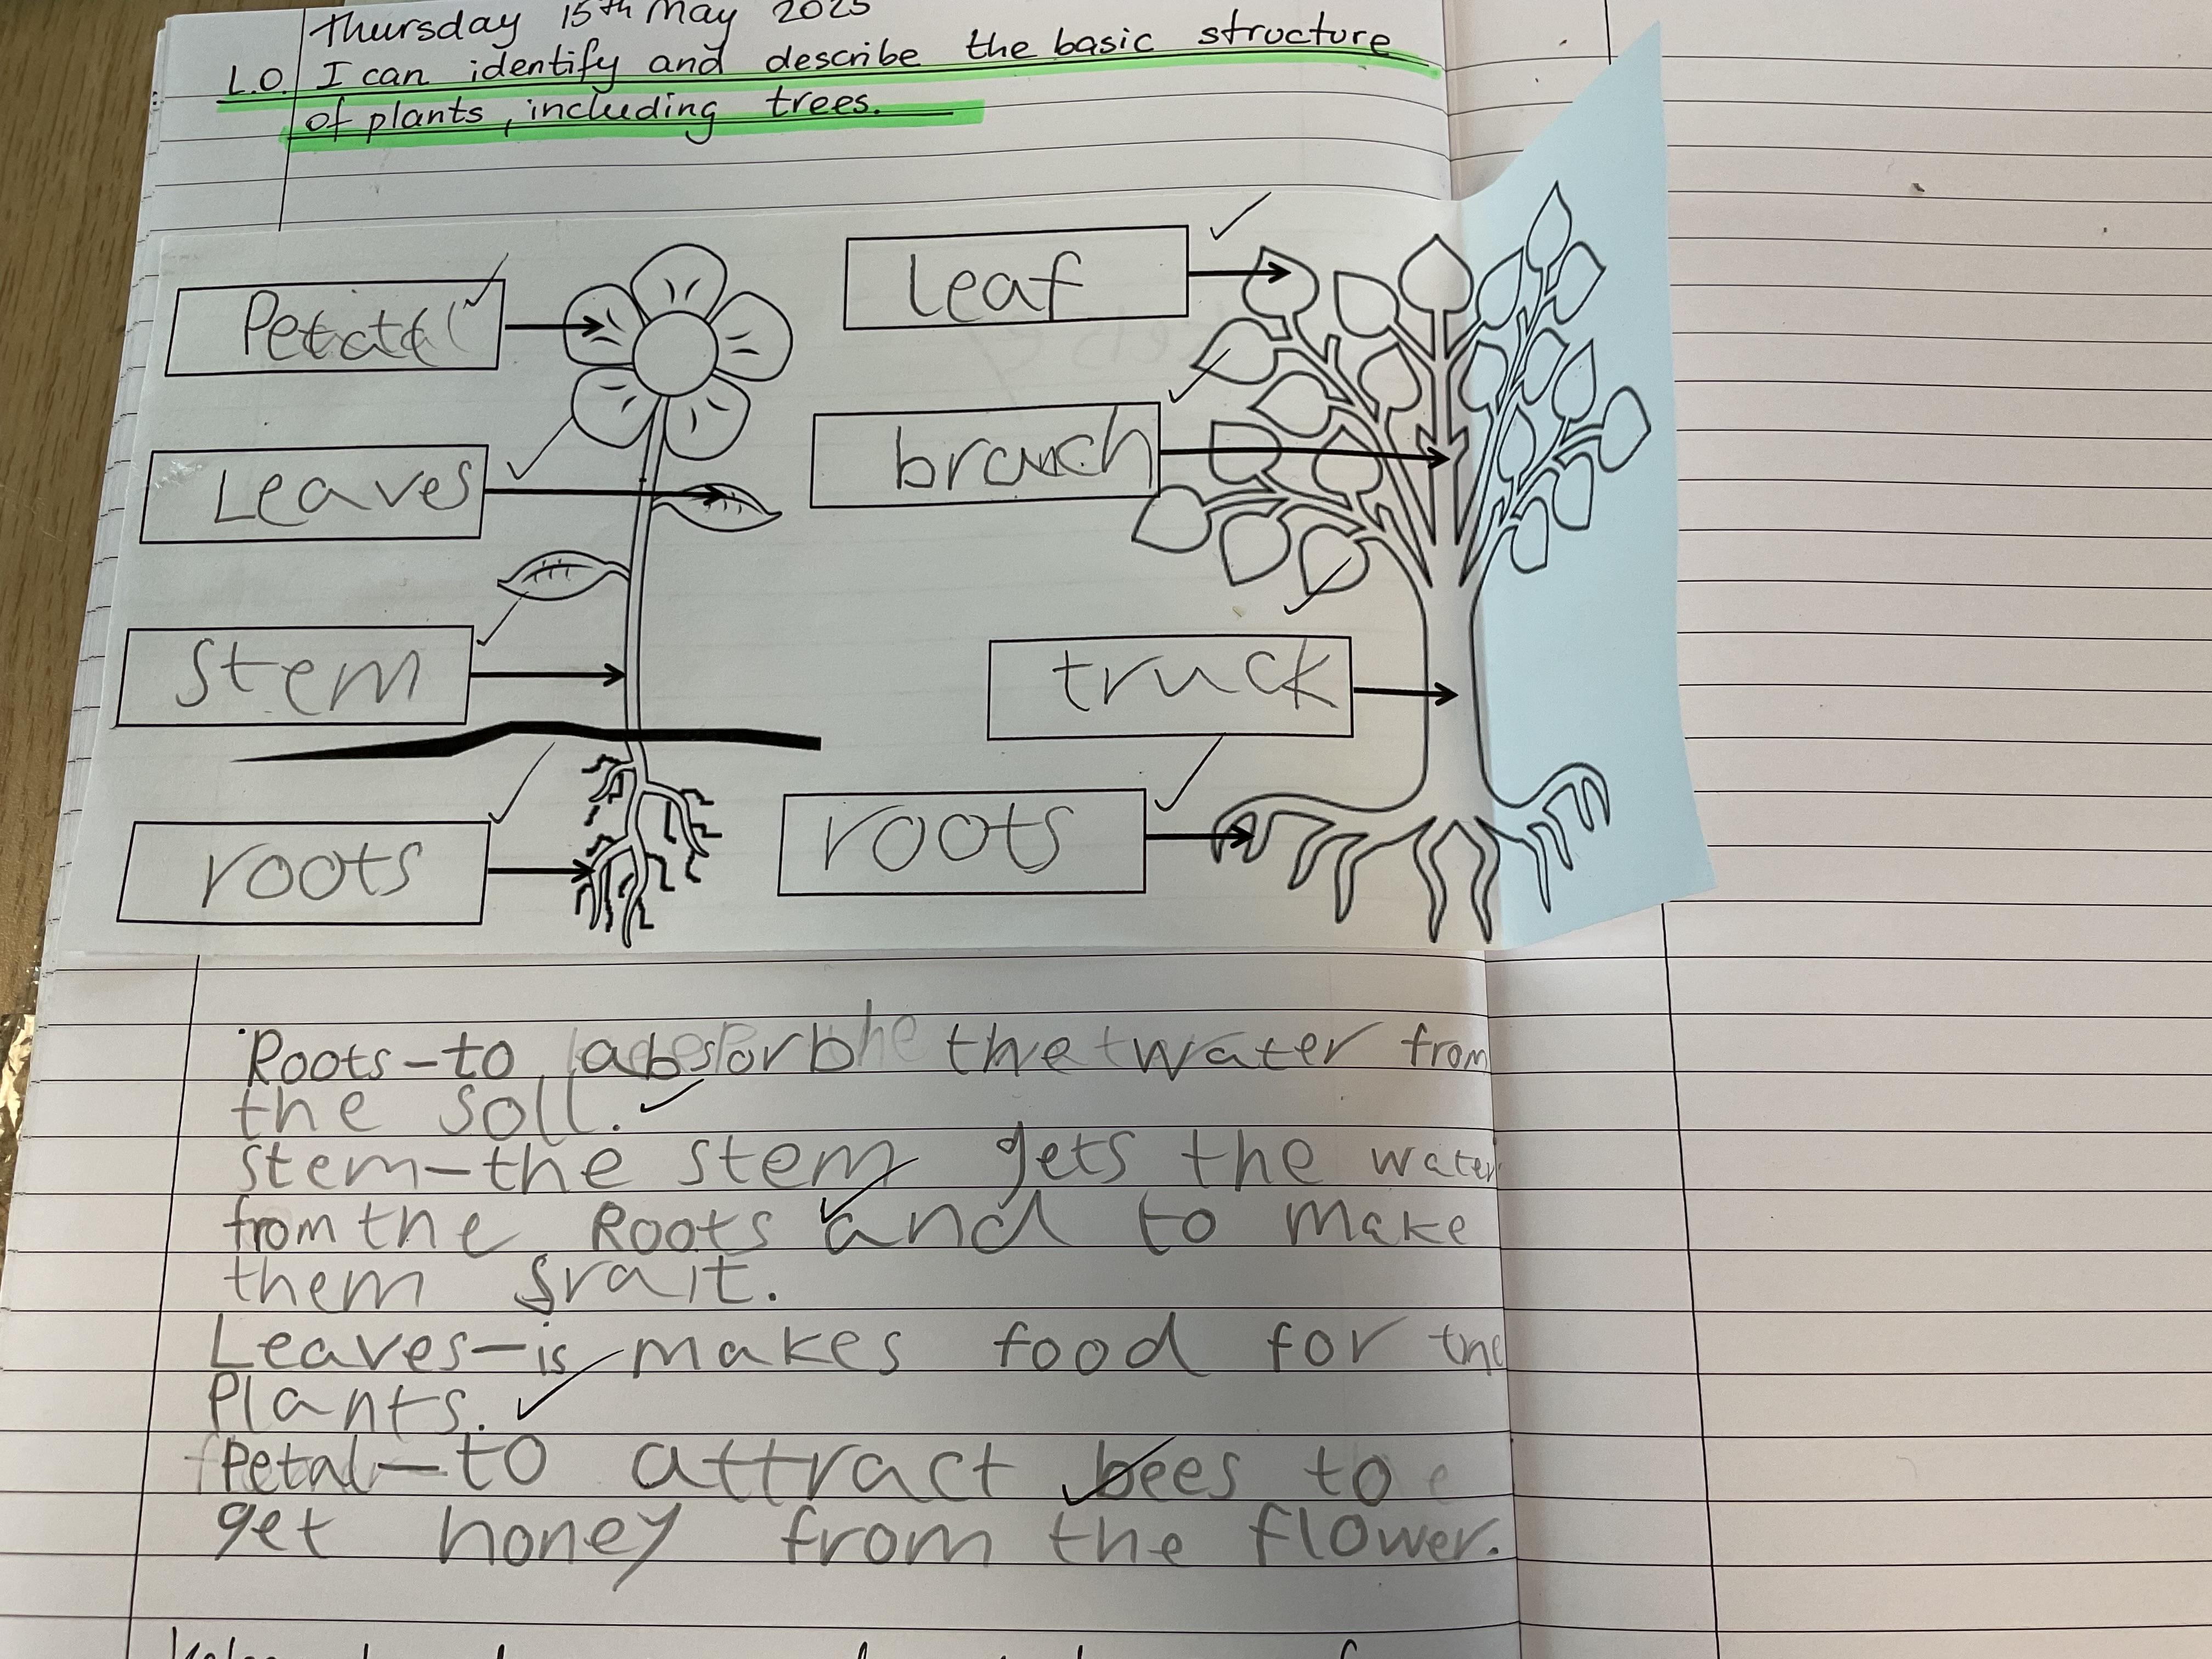 Thursday 15th May 2025
L.O. I can identify and describe the basic structure
of plants, including trees.
Petal
Leaves
Stem
roots
leaf
branch
truck
roots
Roots-to absorb the water from
the soll.
stem-the stem gets the water
from the Roots and to make
them srait.
Leaves-is makes food for the
Plants.
Petal-to attract bees to
get honey from the flower.